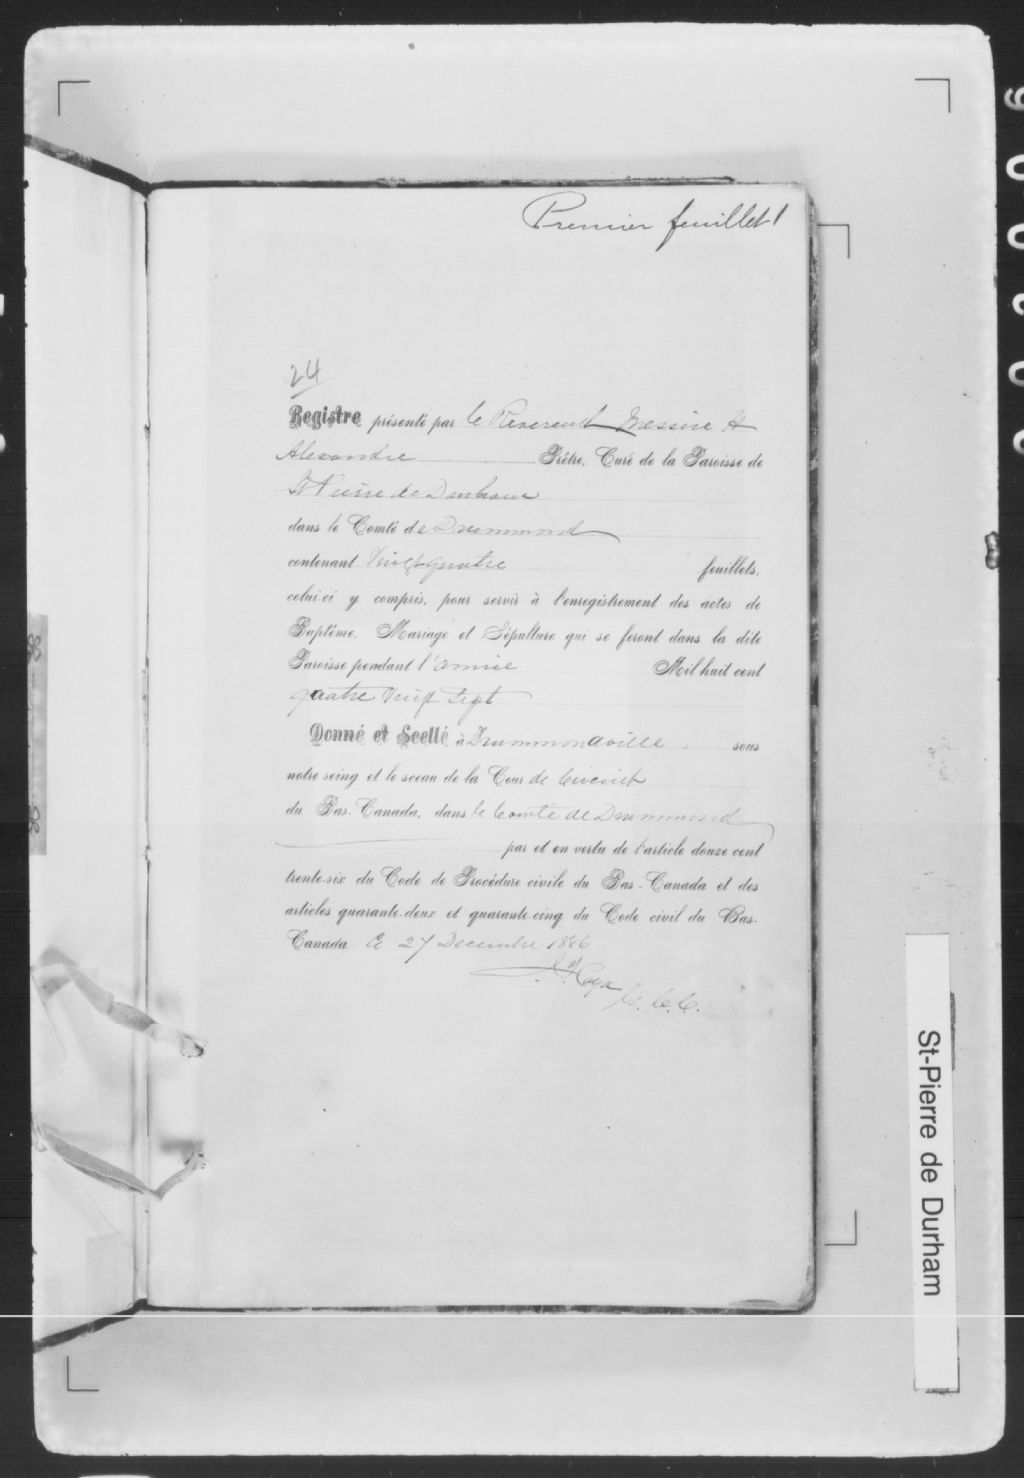 Premier feuillet 1
24
Registre présenté par le Révérend Messire H
Alexandre Prêtre, Curé de la Paroisse de
St Pierre de Durham
dans le Comté de Drummond
contenant Vingt quatre feuillets,
celui-ci y compris, pour servir à l'enregistrement des actes de
Baptême, Mariage et Sépulture qui se feront dans la dite
Paroisse pendant l'année Mil huit cent
quatre Vingt Sept
Donné et Scellé à Drummondville, sous
notre seing et le sceau de la Cour de Circuit
du Bas-Canada, dans le Comté de Drummond
par et en vertu de l'article douze cent
trente-six du Code de Procédure civile du Bas-Canada et des
articles quarante-deux et quarante-cinq du Code civil du Bas-
Canada Ce 27 Decembre 1886
C. C. C.
St-Pierre de Durham